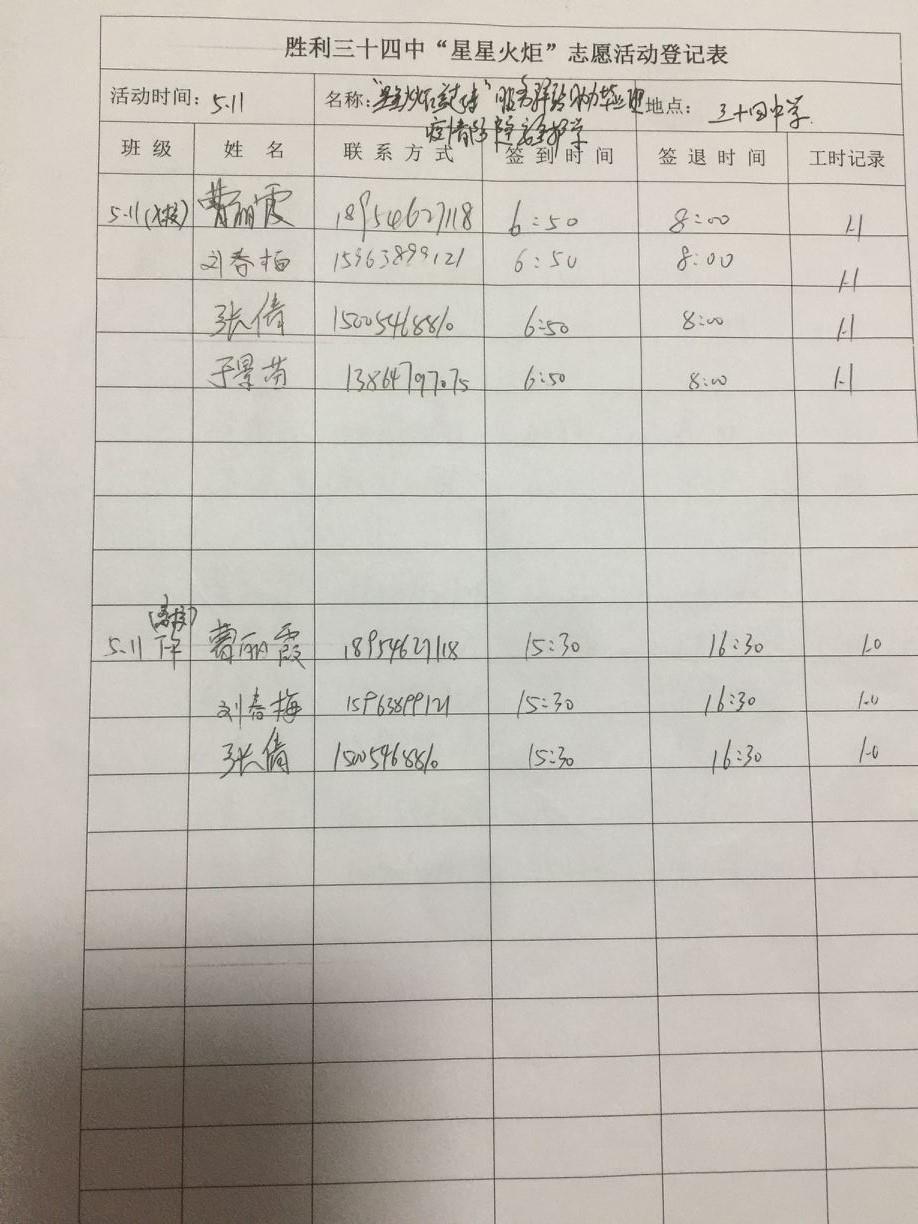 胜利三十四中“星星火炬”志愿活动登记表
活动时间：5.11 名称：“星星火炬 志愿服务 助力毕业班 地点：三十四中学
疫情防控 开学
班级 姓名 联系方式 签到时间 签退时间 工时记录
5.11(入校) 曹丽霞 18954627118 6:50 8:00 1.1
刘春梅 15963899121 6:50 8:00 1.1
张倩 15005468810 6:50 8:00 1.1
于景芬 13864797075 6:50 8:00 1.1
(离校)
5.11 下午 曹丽霞 18954627118 15:30 16:30 1.0
刘春梅 15963899121 15:30 16:30 1.0
张倩 15005468810 15:30 16:30 1.0